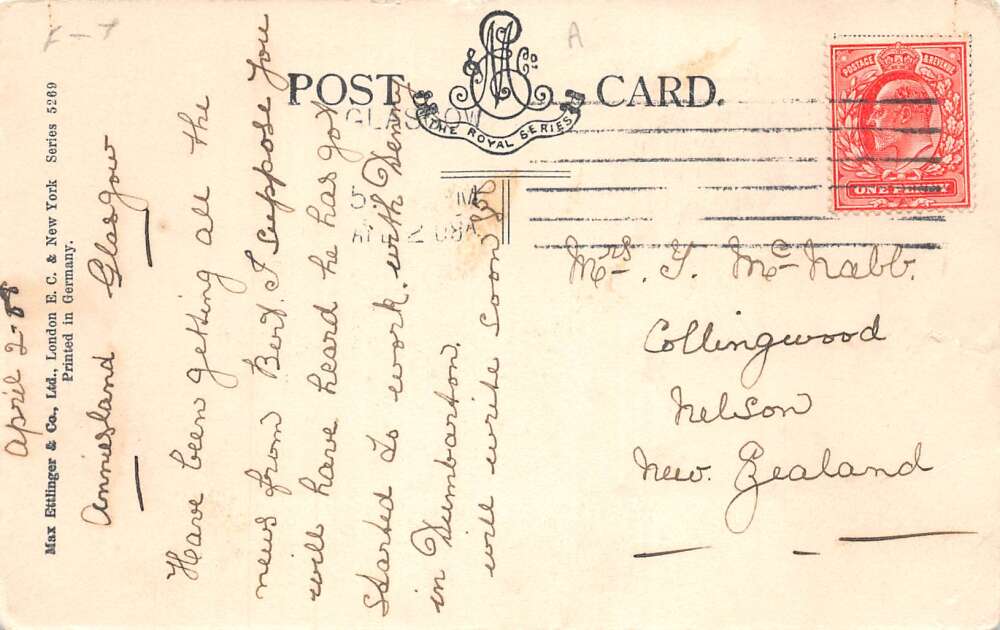 POST CARD.
& Co.
THE ROYAL SERIES
A
POSTAGE & REVENUE
ONE PENNY
GLASGOW
Max Ettlinger & Co., Ltd., London E. C. & New York Series 5269
Printed in Germany.
April 2-08
Anniesland Glasgow
Have been getting all the
news from Bert. I suppose you
will have heard he has got
started to work. with Denny
in Dumbarton.
will write soon
Mrs. T. McNabb.
Collingwood
Nelson
New. Zealand